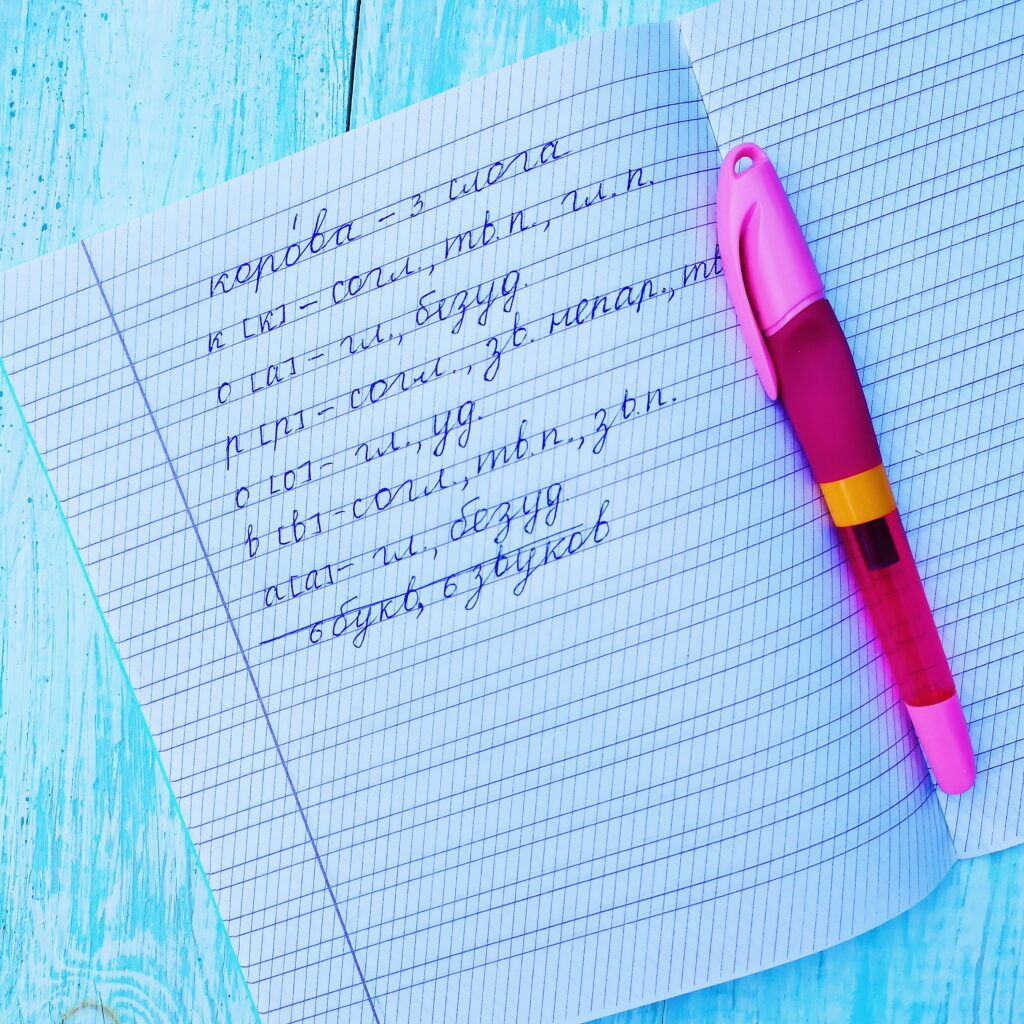 коро́ва - 3 слога
к [к] - согл., тв.п., гл.п.
о [а] - гл., безуд.
р [р] - согл., зв. непар., тв
о [о] - гл., уд.
в [в] - согл., тв.п., зв.п.
а [а] - гл., безуд
6 букв, 6 звуков